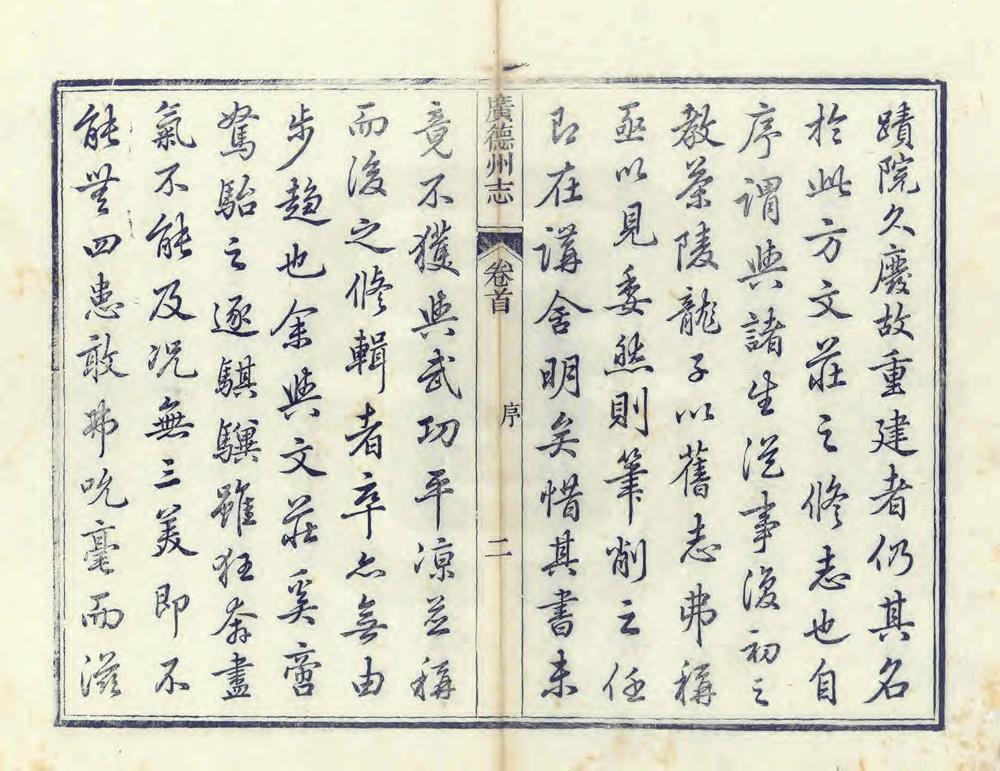 蹟院久廢故重建者仍其名
於此方文莊之修志也自
序謂與諸生從事復初之
教茶陵龍子以舊志弗稱
亟以見委然則筆削之任
即在講舍明矣惜其書未
廣德州志
卷首
序
二
竟不獲與武功平涼並稱
而後之修輯者卒亦無由
步趨也余與文莊奚啻
駑駘之逐騏驥雖狂奔盡
氣不能及况無三美即不
能無四患敢弗吮毫而滋